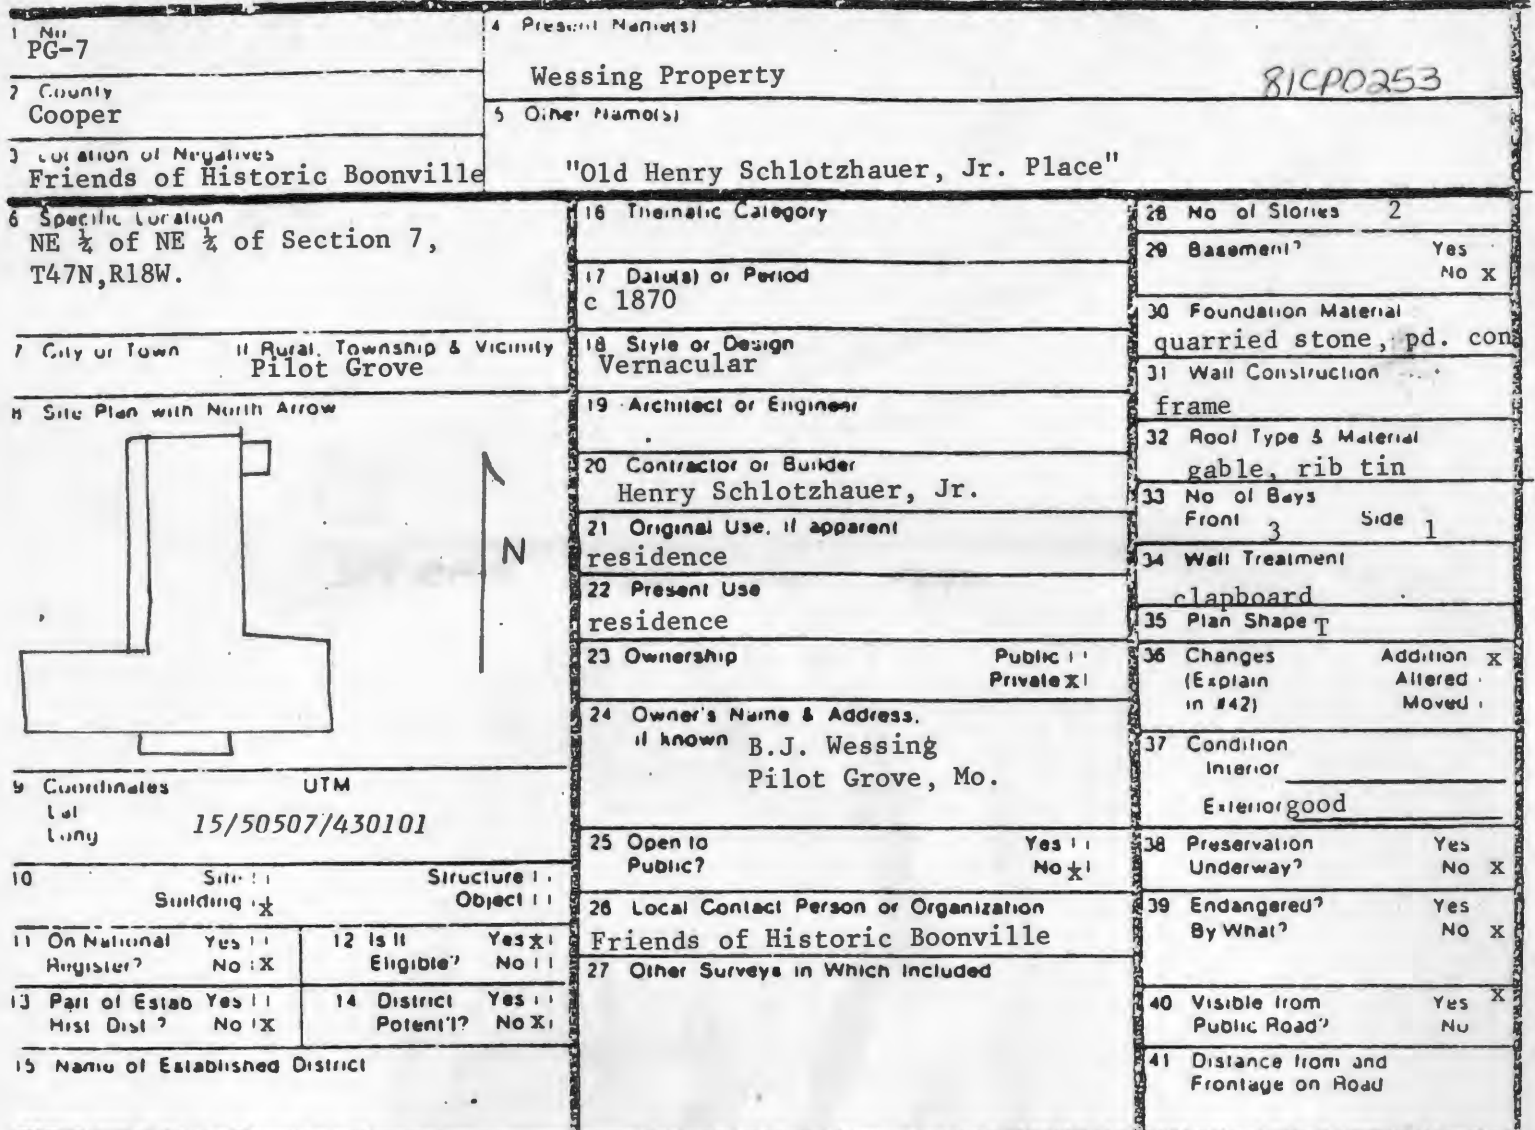 1 No.
PG-7
4 Present Name(s)
Wessing Property
81CPO253
2 County
Cooper
5 Other Name(s)
"Old Henry Schlotzhauer, Jr. Place"
3 Location of Negatives
Friends of Historic Boonville
6 Specific Location
NE ¼ of NE ¼ of Section 7,
T47N,R18W.
7 City or Town If Rural, Township & Vicinity
Pilot Grove
8 Site Plan with North Arrow
N
9 Coordinates UTM
Lat
Long
15/50507/430101
10 Site Structure
Building x Object
11 On National Yes
Register? No X
12 Is It Yes x
Eligible? No
13 Part of Estab Yes
Hist Dist? No X
14 District Yes
Potent'l? No X
15 Name of Established District
16 Thematic Category
17 Date(s) or Period
c 1870
18 Style or Design
Vernacular
19 Architect or Engineer
20 Contractor or Builder
Henry Schlotzhauer, Jr.
21 Original Use, if apparent
residence
22 Present Use
residence
23 Ownership Public
Private x
24 Owner's Name & Address,
if known
B.J. Wessing
Pilot Grove, Mo.
25 Open to Yes
Public? No x
26 Local Contact Person or Organization
Friends of Historic Boonville
27 Other Surveys in Which Included
28 No of Stories 2
29 Basement? Yes
No x
30 Foundation Material
quarried stone, pd. con
31 Wall Construction
frame
32 Roof Type & Material
gable, rib tin
33 No of Bays
Front 3 Side 1
34 Wall Treatment
clapboard
35 Plan Shape T
36 Changes Addition x
(Explain Altered
in #42) Moved
37 Condition
Interior
Exterior good
38 Preservation Yes
Underway? No X
39 Endangered? Yes
By What? No X
40 Visible from Yes X
Public Road? No
41 Distance from and
Frontage on Road